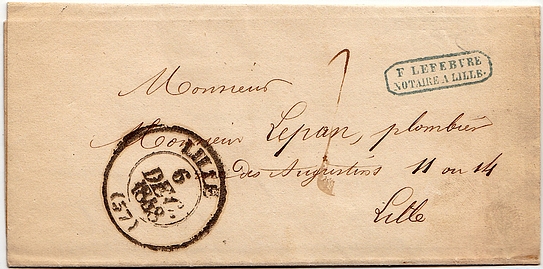 F LEFEBVRE
NOTAIRE A LILLE.
1
Monsieur
Monsieur Lepan, plombier
des Augustins 11 ou 14
Lille
LILLE
6
DEC.
1838
(57)